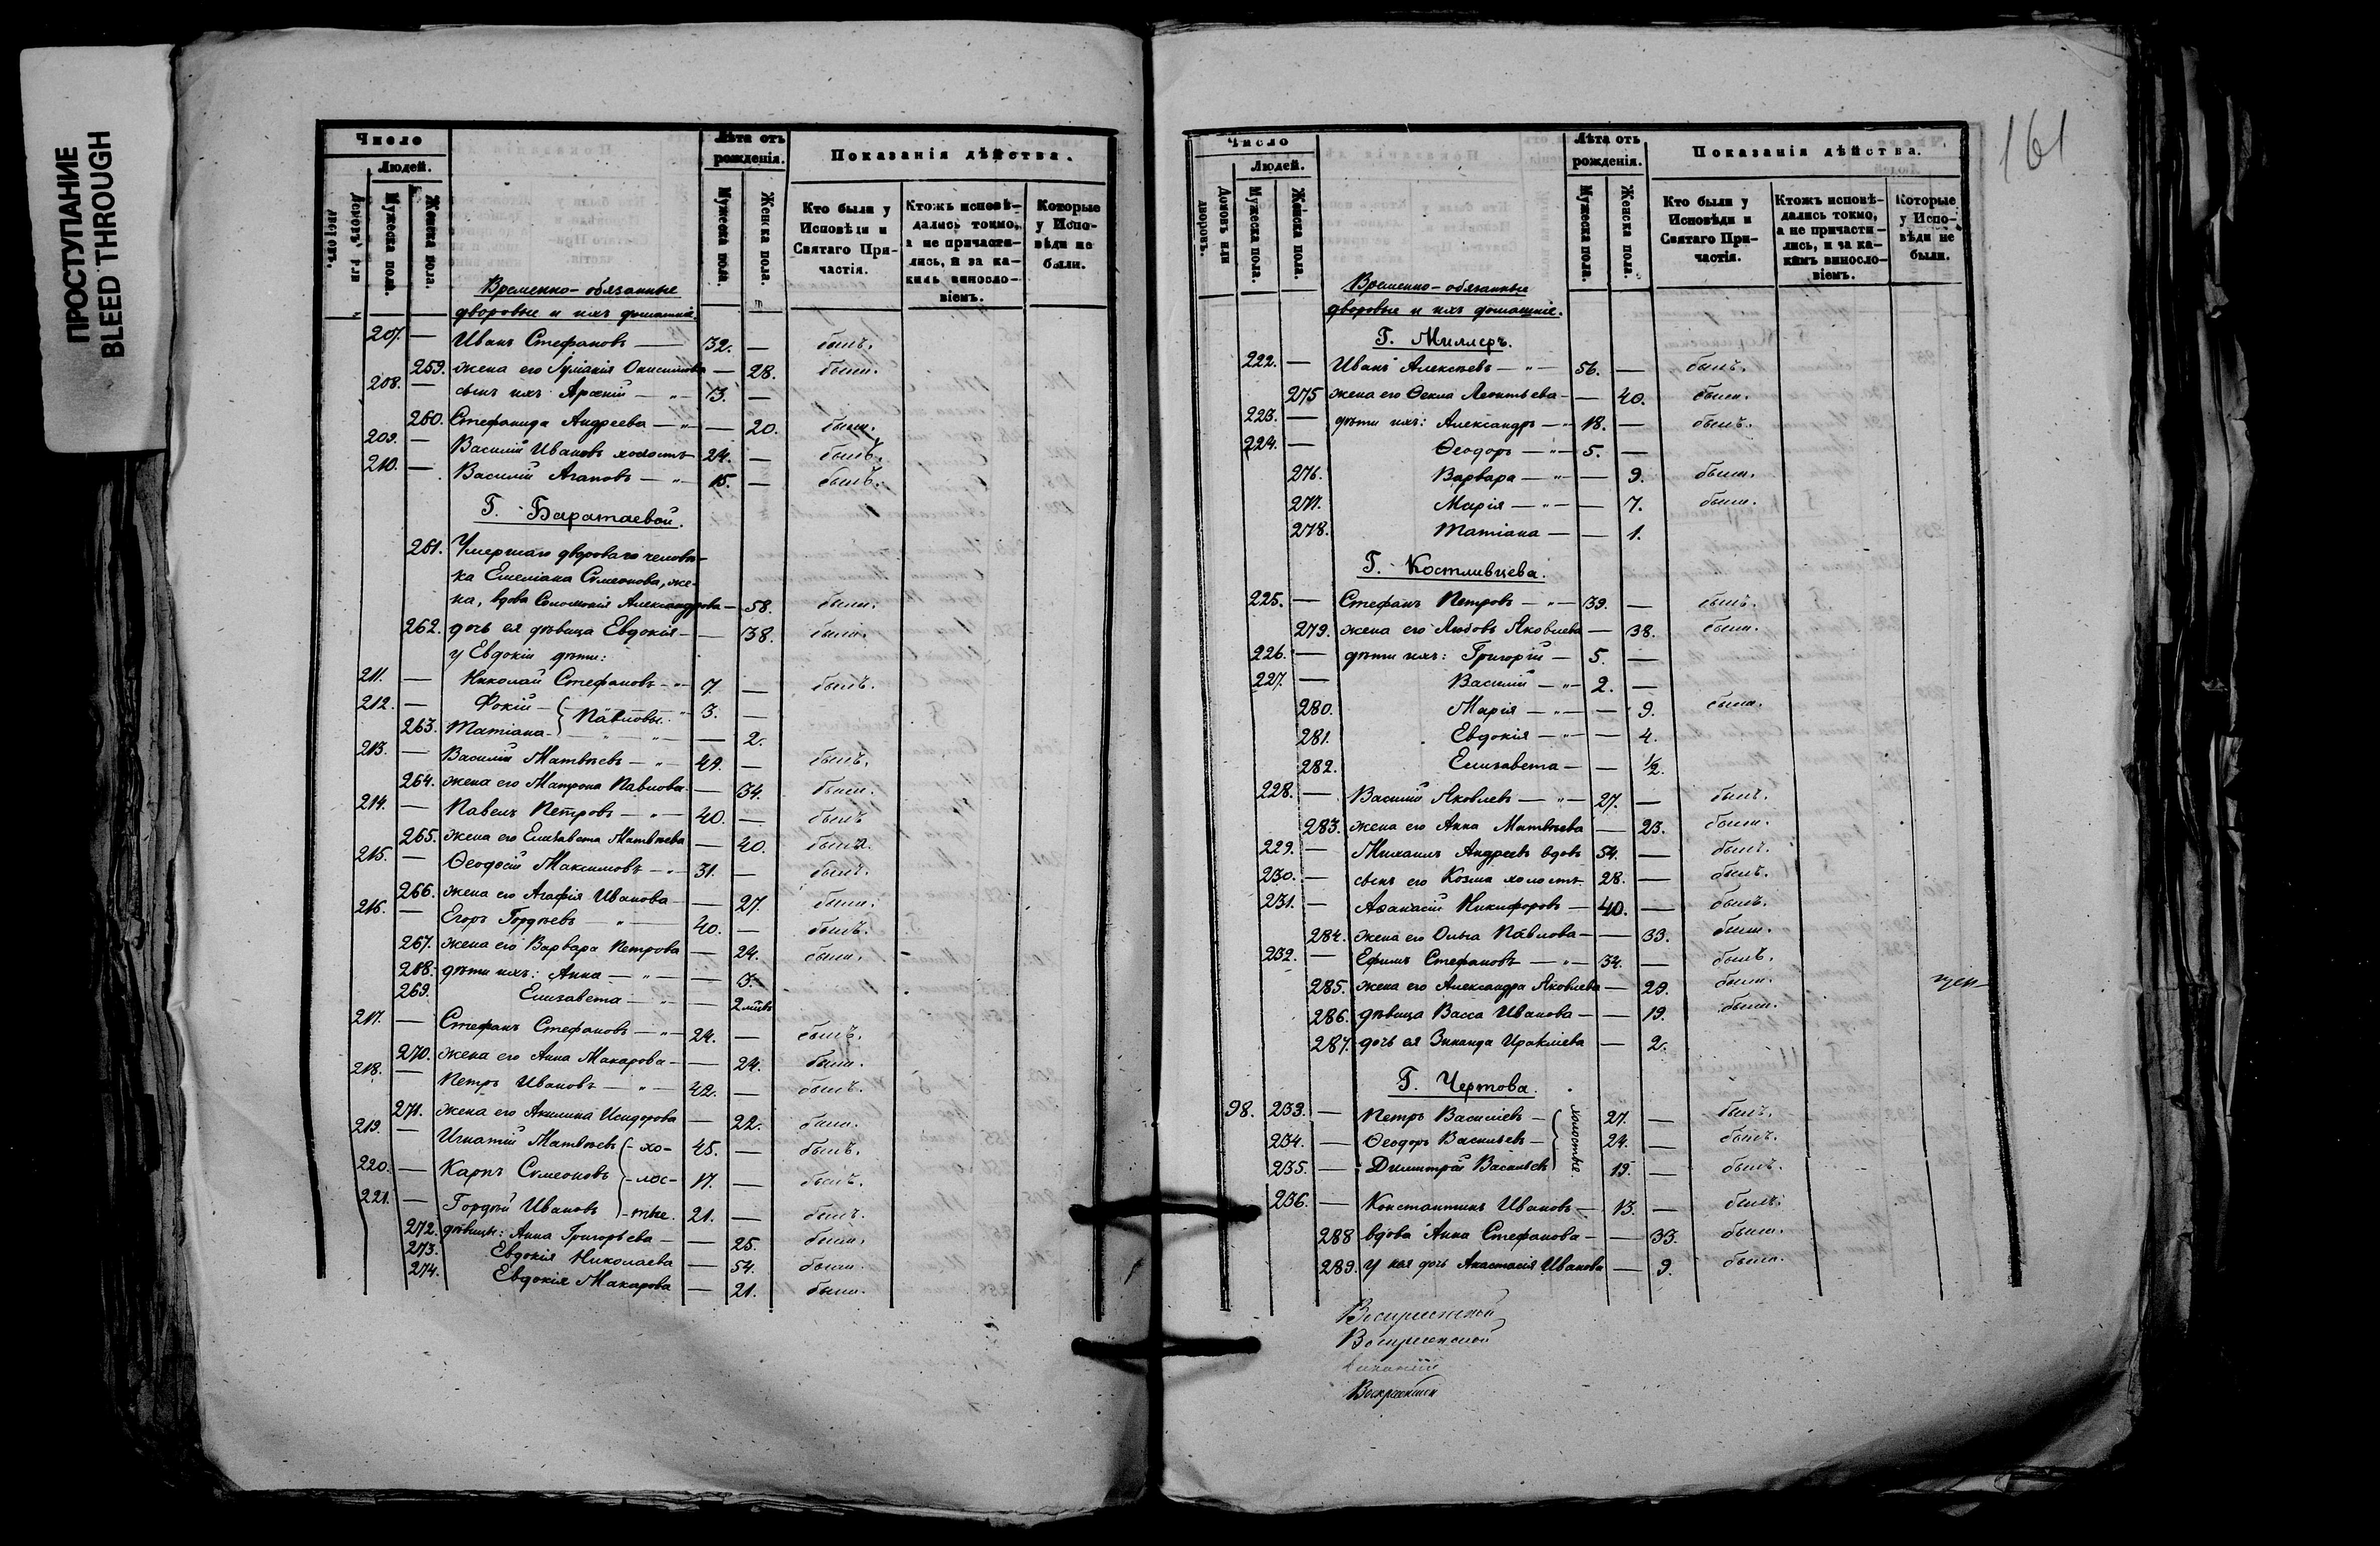 ПРОСТУПАНИЕ
BLEED THROUGH
Число
Людей.
Домовъ или дворовъ.
Мужеска пола.
Женска пола.
Лѣта отъ рожденія.
Мужеска пола.
Женска пола.
Показанія дѣйства.
Кто были у Исповѣди и Святаго Причастія.
Ктожъ исповѣдались токмо, а не причастились, и за какимъ винословіемъ.
Которые у Исповѣди не были.
Временно-обязанные
дворовые и ихъ домашніе.
207. — Иванъ Стефановъ — 32. — былъ.
259. жена его Онисимова — 28. была.
208. — сынъ ихъ Арсеній — " — 13. —
260. Стефанида Андреева — " — 20. была.
209. — Василій Ивановъ холостъ 24. — былъ.
210. — Василій Агаповъ — " — 15. — былъ.
Г. Баратаевой.
261. Умершаго двороваго человѣ-
ка Емеліана Сѵмеонова, же-
на, вдова Соломонія Александрова — 58. была.
262. дочь ея дѣвица Евдокія — — 38. была.
у Евдокіи дѣти:
211. — Николай Стефановъ — " 7. — былъ.
212. — Фокій — } Павловы. " 3. —
263. Татіана — " " — 2.
213. — Василій Матвѣевъ — " — 49. — былъ.
264. жена его Матрона Павлова — 34. была.
214. — Павелъ Петровъ — " — 40. — былъ
265. жена его Елизавета Матвѣева — 40. была.
215. — Ѳеодосій Максимовъ — " — 31. — былъ.
266. жена его Агафія Иванова — 27. была.
216. — Егоръ Гордѣевъ — " — 40. — былъ.
267. жена его Варвара Петрова — 24. была.
268. дѣти ихъ: Анна — " — — 3.
269. Елизавета — " — — 2 мѣсъ
217. — Стефанъ Стефановъ — " — 24. — былъ.
270. жена его Анна Макарова — — 24. была.
218. — Петръ Ивановъ — " — 42. — былъ.
271. жена его Акилина Исидорова — 22. была.
219. — Игнатій Матвѣевъ } - хо- 45. — былъ.
220. — Карпъ Сѵмеоновъ } - лос- 17. — былъ.
221. — Гордій Ивановъ } - тые. 21. — былъ.
272. дѣвицы: Анна Григорьева — — 25. была.
273. Евдокія Николаева — 54. была.
274. Евдокія Макарова — 21. была.
161
Число
Людей.
Домовъ или дворовъ.
Мужеска пола.
Женска пола.
Лѣта отъ рожденія.
Мужеска пола.
Женска пола.
Показанія дѣйства.
Кто были у Исповѣди и Святаго Причастія.
Ктожъ исповѣдались токмо, а не причастились, и за какимъ винословіемъ.
Которые у Исповѣди не были.
Временно-обязанные
дворовые и ихъ домашніе.
Г. Миллеръ.
222. — Иванъ Алексѣевъ — " — 56. — былъ.
275 жена его Ѳекла Леонтьева — — 40. была.
223. — дѣти ихъ: Александръ — " 18. — былъ.
224. — Ѳеодоръ — " — 5. —
276. Варвара — " — — 9. была.
277. Марія — " — — 7. была.
278. Татіана — — 1.
Г. Костливцева.
225. — Стефанъ Петровъ — " — 39. — былъ.
279. жена его Любовь Яковлева — 38. была.
226. — дѣти ихъ: Григорій — 5. —
227. — Василій — " — 2. —
280. Марія — " — — 9. была.
281. Евдокія — " — — 4.
282. Елизавета — — 1/2.
228. — Василій Яковлевъ — " — 27. — былъ.
283. жена его Анна Матвѣева — 23. была.
229. — Михаилъ Андреевъ вдовъ 54. — былъ.
230. — сынъ его Козма холостъ 28. — былъ.
231. — Аѳанасій Никифоровъ — 40. — былъ.
284. жена его Ольга Павлова — — 33. была.
232. — Ефимъ Стефановъ — " — 34. — былъ.
285. жена его Александра Яковлева — 29. была.
286. дѣвица Васса Иванова — — 19. была.
287. дочь ея Зинаида Ираклiева — 2.
Г. Чертова.
98. 233. — Петръ Василіевъ — } холостые 27. — былъ.
234. — Ѳеодоръ Васильевъ — } 24. — былъ.
235. — Димитрій Васильевъ } 19. — былъ.
236. — Константинъ Ивановъ — 13. — былъ.
288 вдова Анна Стефанова — — 33. была.
289. у нея дочь Анастасія Иванова — 9. была.